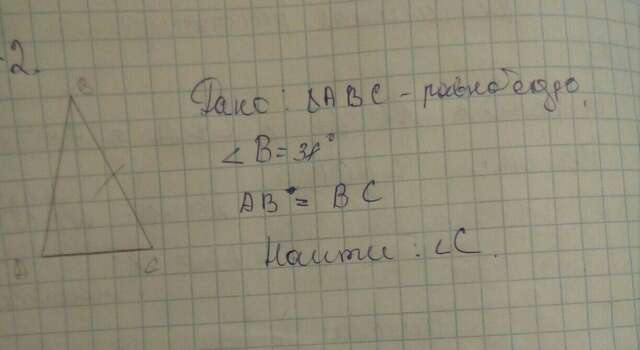 2.
B
Дано: ΔABC - равнобедр.
∠B=38°
AB = BC
Найти: ∠C.
C